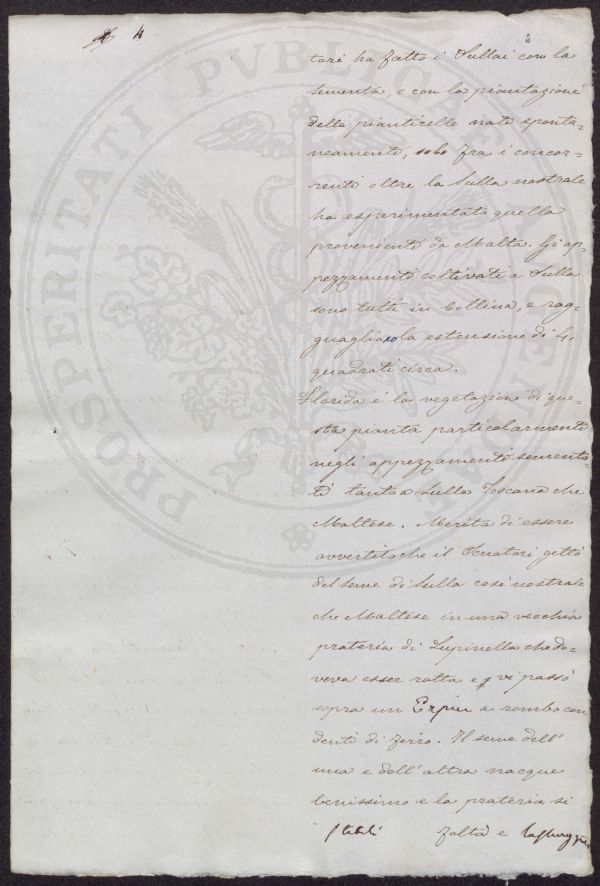 4
tori ha fatto i Sullai con la
sementa, e con la piantazione
delle pianticelle nate sponta-
neamente, solo fra i concor-
renti oltre la Sulla nostrale
ha esperimentato quella
proveniente da Malta. Gi ap-
pezzamenti coltivati a Sulla
sono tutti in Collina, e rag-
guagliano la estensione di 4.
quadrati circa.
Florida é la vegetazione di que-
sta pianta particolarmente
negli appezzamenti sementa-
ti tanto a Sulla Toscana che
Maltese. Merita di essere
avvertito che il Senatori getti
del seme di Sulla cosi nostrale
che Maltese in una vecchia
prateria di Lupinella che do-
veva esser rotta e vi passò
sopra un Erpice a rombo con
denti di ferro. Il seme dell'
una e dell'altra nacque
benissimo e la prateria si
falta e
PROSPERITATI PVBLICAE AVGENDAE